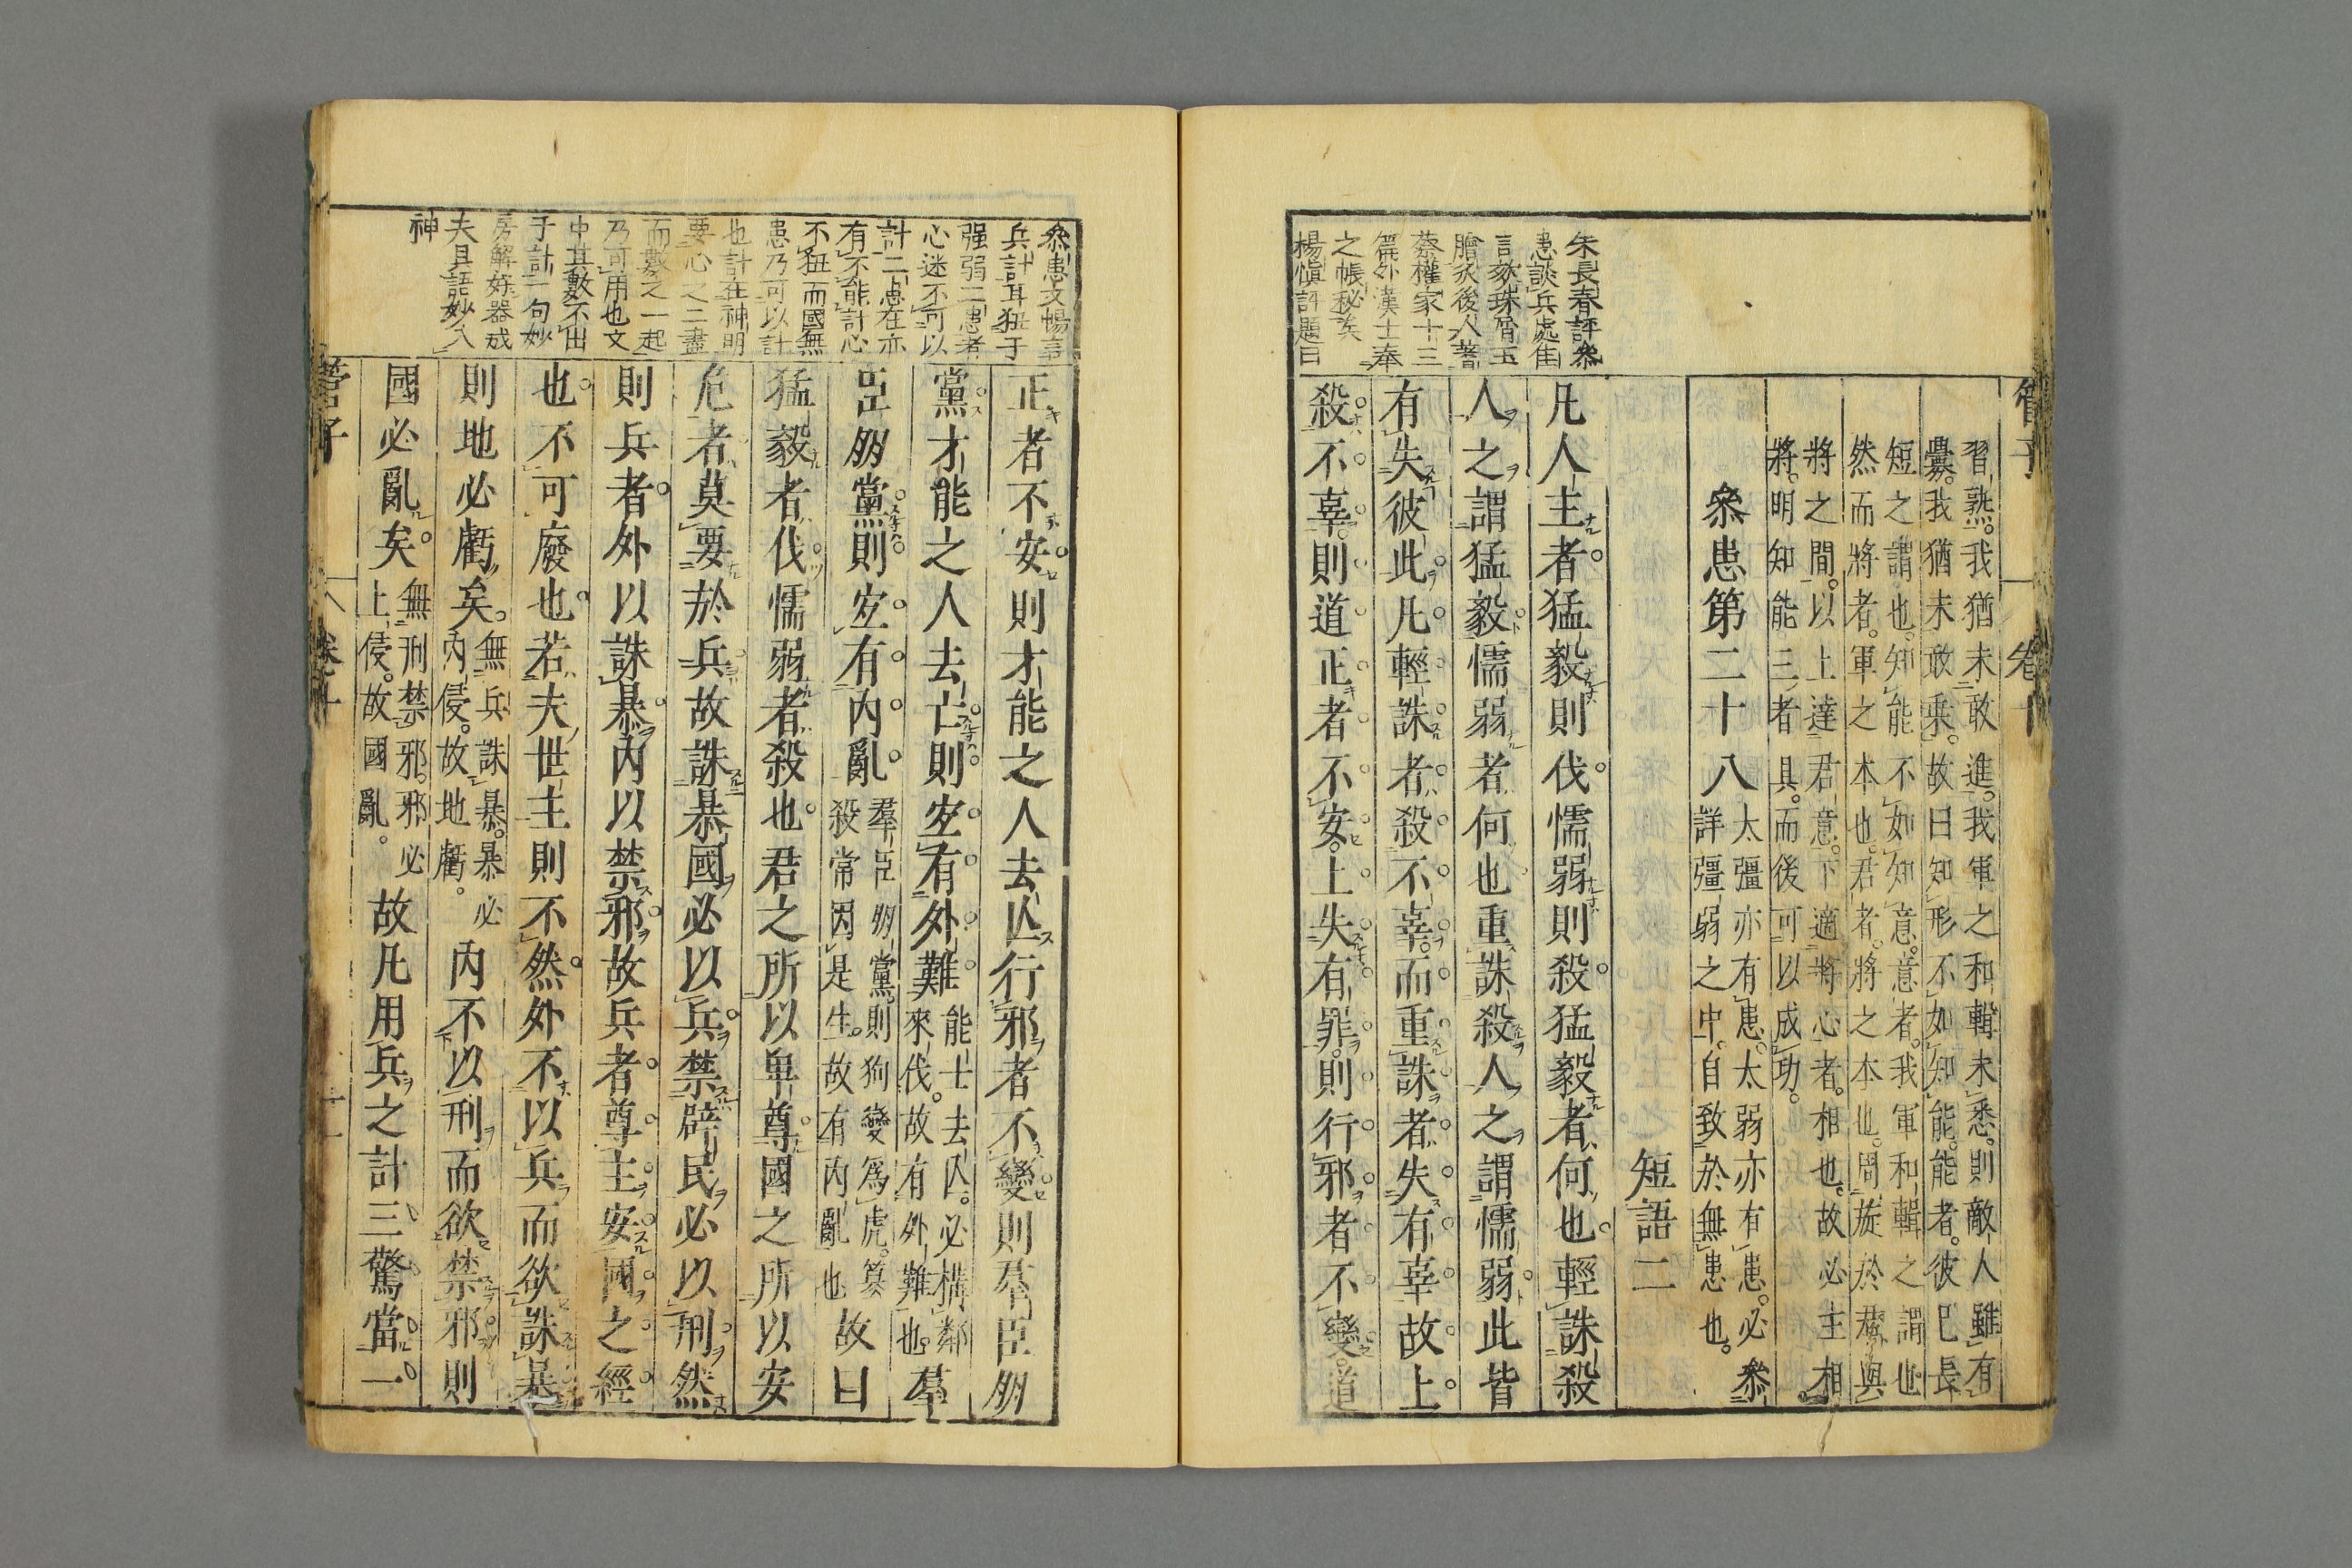 管子　卷十
朱長春評叅
患談兵處隹
言欬珠屑玉
膾炙後人著
蔡權家十三
篇外漢士奉
之帳秘矣
楊愼評題曰
習熟。我猶未敢進。我軍之和輯未悉。則敵人雖有
釁。我猶未敢乗。故曰知形不如知能。能者。彼已長
短之謂也。知能不如知意。意者。我軍和輯之謂也
然而將者。軍之本也。君者。將之本也。周旋於君與
將之間。以上達君意。下適將心者。相也。故必主相
將。明知能三者具。而後可以成功。
叅患第二十八
太彊亦有患。太弱亦有患。必叅
詳彊弱之中。自致於無患也。
短語二
凡人主者。猛毅則伐。懦弱則殺。猛毅者何也。輕誅殺
人之謂猛毅懦弱者何也重誅殺人之謂懦弱此皆
有失彼此。凡輕誅者殺不辜。而重誅者失有辜故上
殺不辜則道正者不安。上失有罪。則行邪者不變。道
叅患文暢言
兵計耳狃于
强弱二患者
心迷不可以
計二患在亦
有不能計心
不狃而國無
患乃可以計
也計在神明
要心之二盡
而數之一起
乃可用也文
中其數不出
于計一句妙
房解好器戒
夫具語妙入
神
正者不安則才能之人去亾行邪者不變則羣臣朋
黨才能之人去亡則宐有外難
能士去亾。必構鄰
來伐。故有外難也。
羣
臣朋黨則宐有内亂
羣臣朋黨則狗變爲虎。簒
殺常因是生。故有内亂也
故曰
猛毅者伐。懦弱者殺也。君之所以卑尊國之所以安
危者莫要於兵故誅暴國必以兵禁辟民必以刑然
則兵者。外以誅暴内以禁邪故兵者尊主安國之經
也。不可廢也。若夫世主則不然。外不以兵而欲誅暴
則地必虧矣。
無兵誅暴。暴必
内侵。故地虧。
内不以刑而欲禁邪則
國必亂矣。
無刑禁邪。邪必
上侵。故國亂。
故凡用兵之計三驚當一
管子　卷十　十一